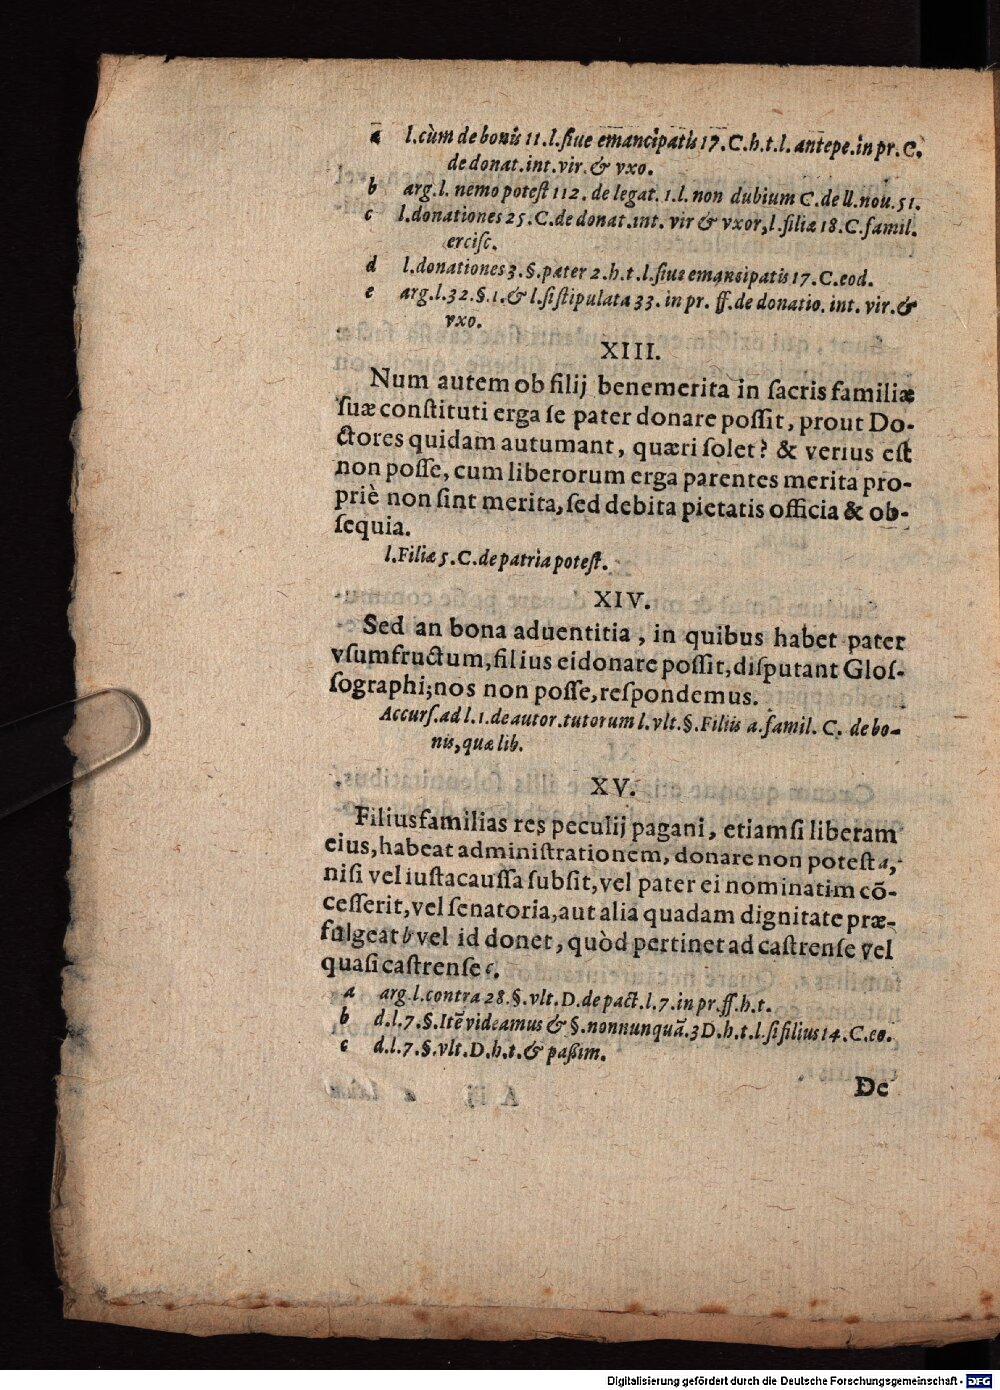 a l.cùm de bonis 11.l.ſiue emancipatis 17.C.h.t.l. antepe.in pr. C.
de donat.int.vir. & vxo.
b arg.l. nemo poteſt 112. de legat. 1.l. non dubium C.de ll.nou.51.
c l.donationes 25.C.de donat.int. vir & vxor,l.filiæ 18.C.famil.
erciſc.
d l.donationes 3.§.pater 2.h.t.l.ſiue emancipatis 17.C.eod.
e arg.l.32.§.1.& l.ſi ſtipulata 33. in pr. ff.de donatio. int. vir.&
vxo.
XIII.
Num autem ob filij benemerita in ſacris familiæ
ſuæ conſtituti erga ſe pater donare poſſit, prout Do-
ctores quidam autumant, quæri ſolet? & verius eſt
non poſſe, cum liberorum erga parentes merita pro-
priè non ſint merita, ſed debita pietatis officia & ob-
ſequia.
l.Filiæ 5.C.de patria poteſt.
XIV.
Sed an bona aduentitia, in quibus habet pater
vſumfructum, filius ei donare poſſit, diſputant Gloſ-
ſographi; nos non poſſe, reſpondemus.
Accurſ.ad l.1.de autor.tutorum l.vlt.§.Filiis a.famil. C. de bo-
nis, quæ lib.
XV.
Filiusfamilias res peculij pagani, etiamſi liberam
eius, habeat adminiſtrationem, donare non poteſt a,
niſi vel iuſta cauſſa ſubſit, vel pater ei nominatim cõ-
ceſſerit, vel ſenatoria, aut alia quadam dignitate præ-
fulgeat b vel id donet, quòd pertinet ad caſtrenſe vel
quaſi caſtrenſe c.
a arg.l.contra 28.§.vlt.D.de pact.l.7.in pr.ff.h.t.
b d.l.7.§.Itẽ videamus & §.nonnunquã.3 D.h.t.l.ſi filius 14.C.eo.
c d.l.7.§.vlt.D.h.t.& paßim.
De
Digitalisierung gefördert durch die Deutsche Forschungsgemeinschaft - DFG